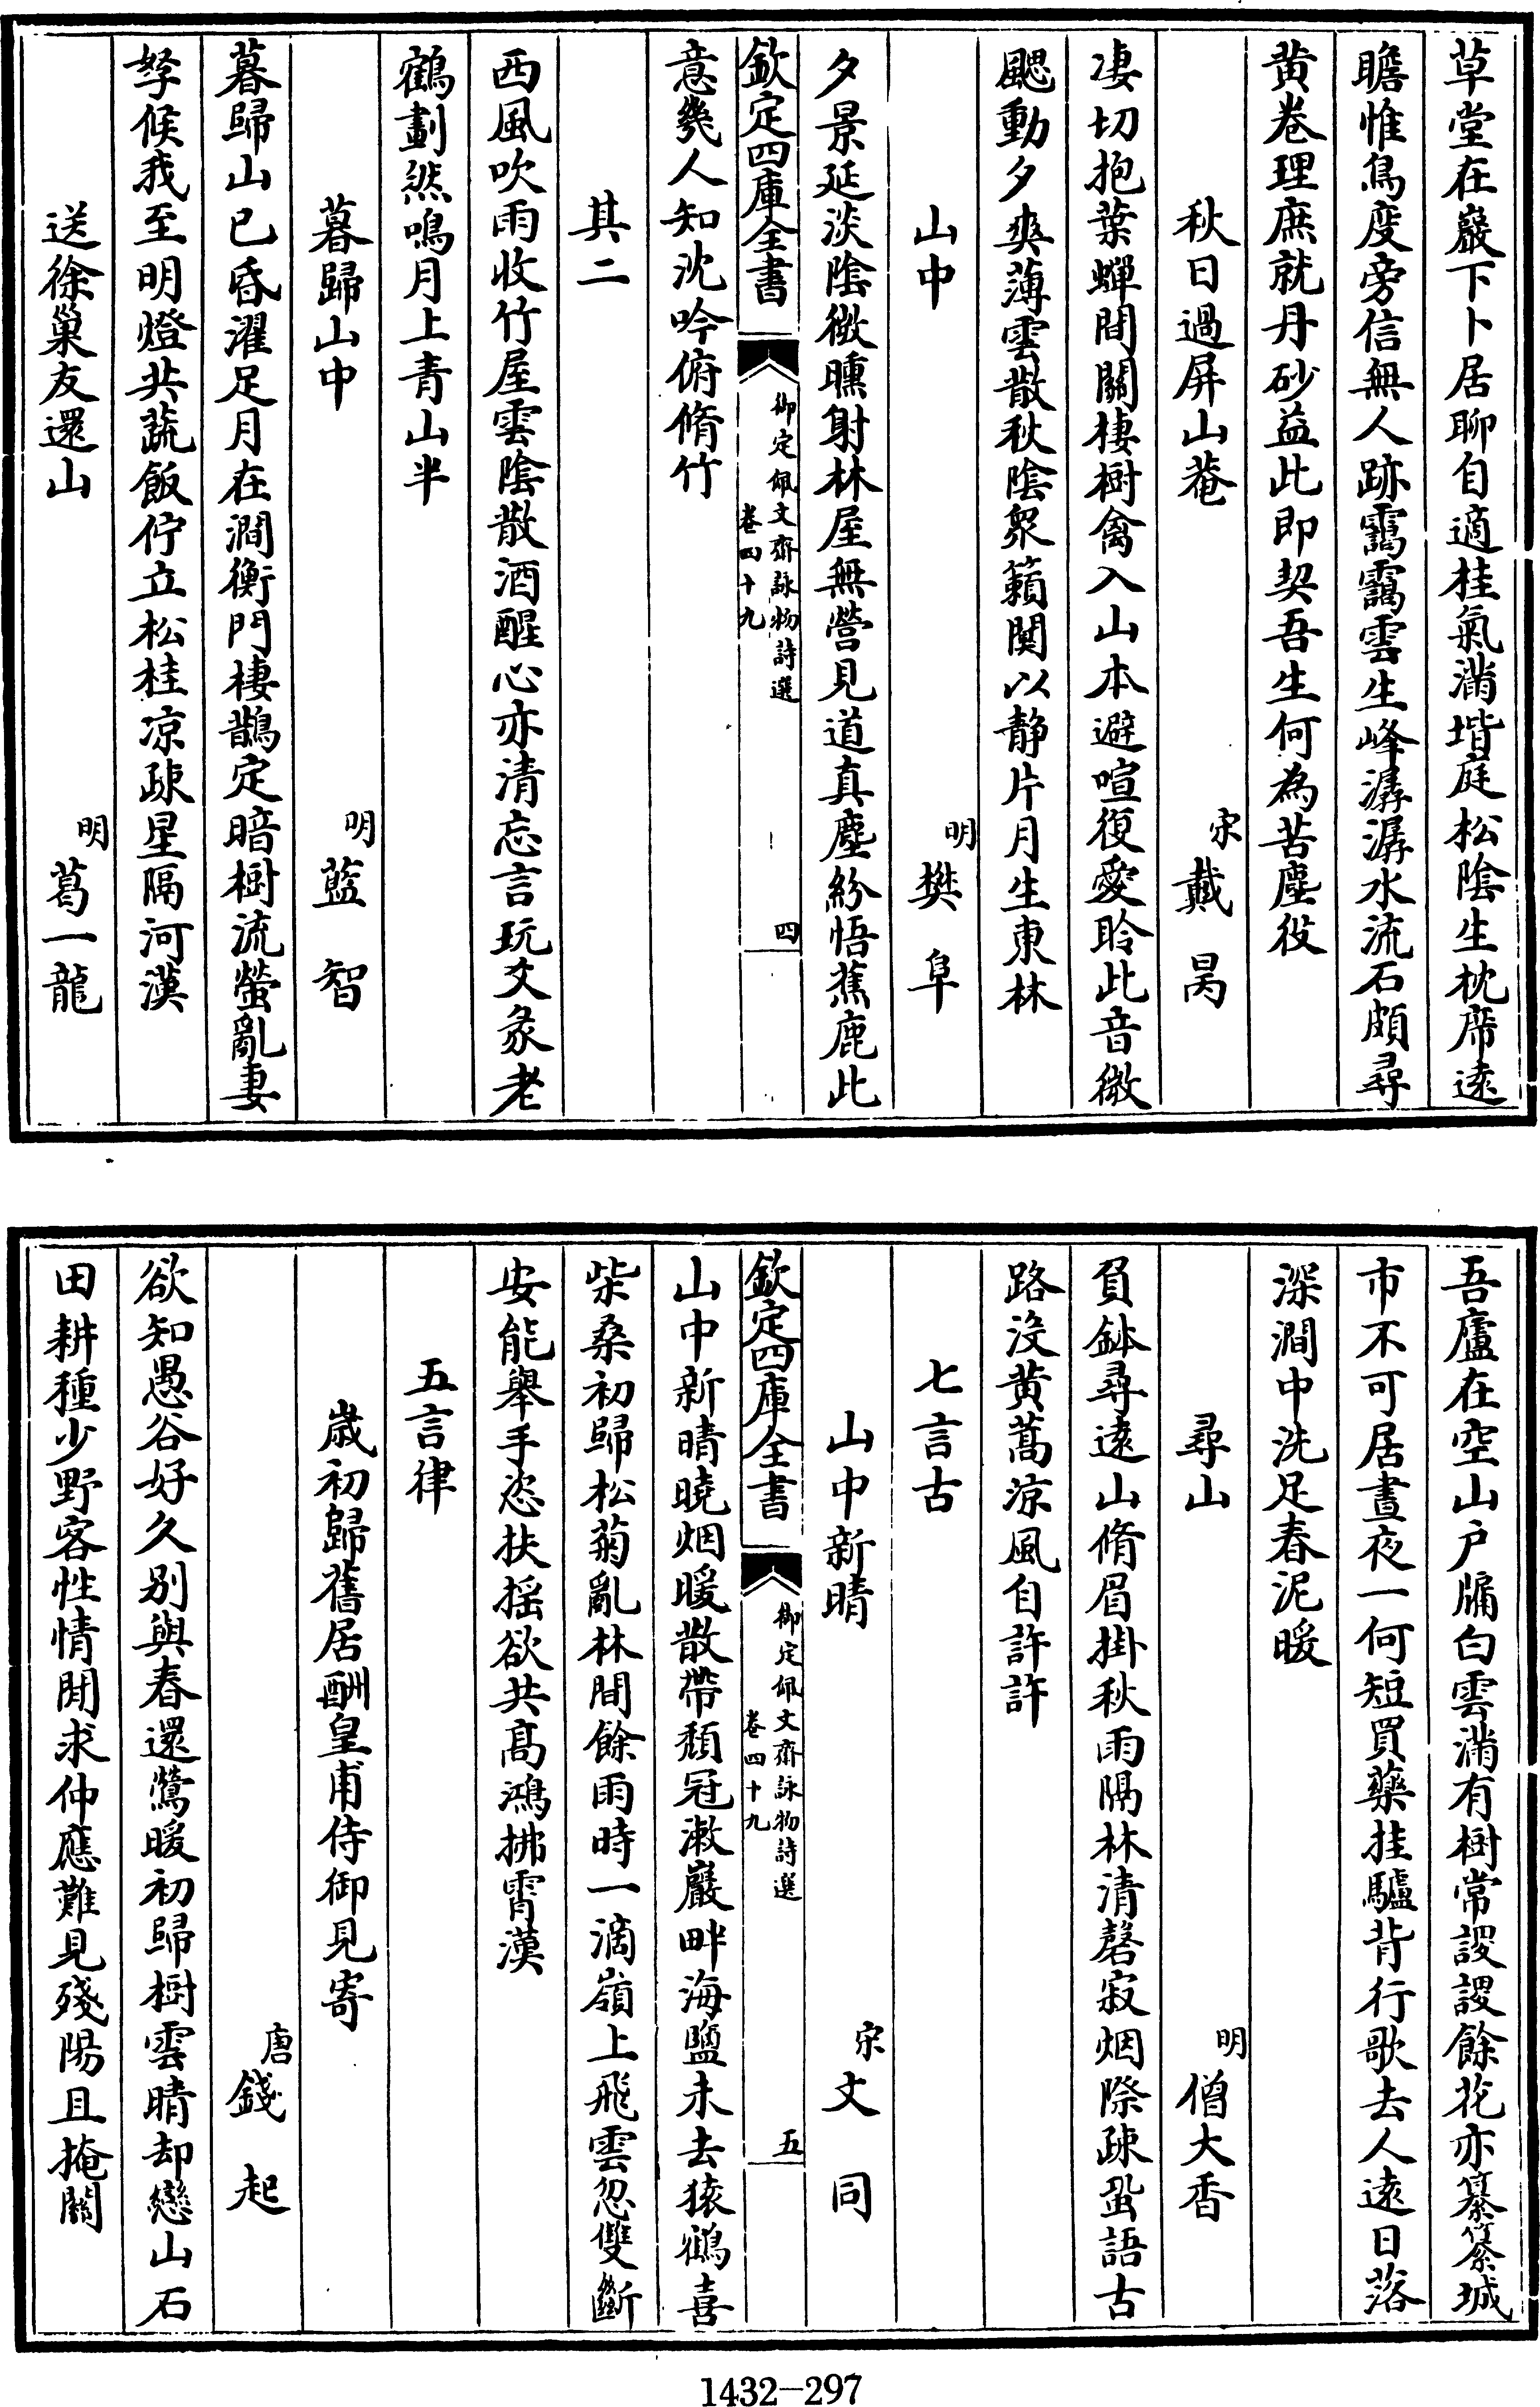 草堂在巖下卜居聊自適桂氣滿堦庭松陰生枕席遠
瞻惟鳥度旁信無人跡靄靄雲生峰潺潺水流石頗尋
黄卷理庶就丹砂益此即契吾生何為苦塵役
秋日過屏山菴 宋 戴昺
凄切抱葉蟬間關棲樹禽入山本避喧復愛聆此音微
颸動夕爽薄雲散秋陰衆籟閴以静片月生東林
山中 明 樊阜
夕景延淡陰微曛射林屋無營見道真塵紛悟蕉鹿此
欽定四庫全書 御定佩文齋詠物詩選 卷四十九 四
意幾人知沈吟俯脩竹
其二
西風吹雨收竹屋雲陰散酒醒心亦清忘言玩爻彖老
鶴劃然鳴月上青山半
暮歸山中 明 藍智
暮歸山已昏濯足月在澗衡門棲鵲定暗樹流螢亂妻
孥候我至明燈共蔬飯佇立松桂凉疎星隔河漢
送徐巢友還山 明 葛一龍
吾廬在空山户牖白雲滿有樹常謖謖餘花亦纂纂城
市不可居晝夜一何短買藥挂驢背行歌去人遠日落
深澗中洗足春泥暖
尋山 明 僧大香
負鉢尋遠山脩眉掛秋雨隔林清磬寂烟際疎蛩語古
路没黄蒿凉風自許許
七言古
山中新晴 宋 文同
山中新晴曉烟暖散帶頹冠漱巖畔海鹽未去猿鶴喜
欽定四庫全書 御定佩文齋詠物詩選 卷四十九 五
柴桑初歸松菊亂林間餘雨時一滴嶺上飛雲忽雙斷
安能舉手恣扶摇欲共高鴻拂霄漢
五言律
歲初歸舊居酬皇甫侍御見寄
唐 錢起
欲知愚谷好久别與春還鶯暖初歸樹雲晴却戀山石
田耕種少野客性情閒求仲應難見殘陽且掩關
1432-297